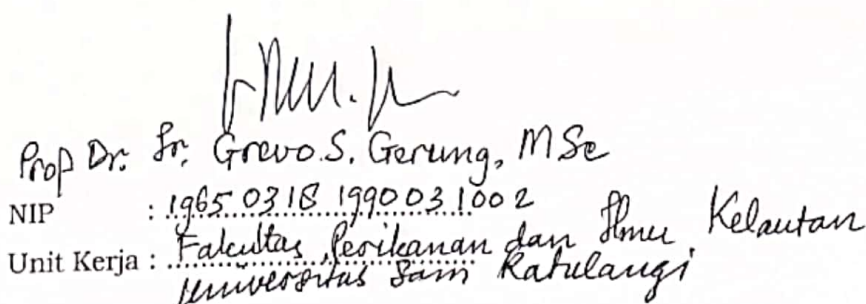 Prof Dr. Ir. Grevo S. Gerung, MSc
NIP : 1965 0318 1990 03 1002
Unit Kerja : Fakultas Perikanan dan Ilmu Kelautan
Universitas Sam Ratulangi